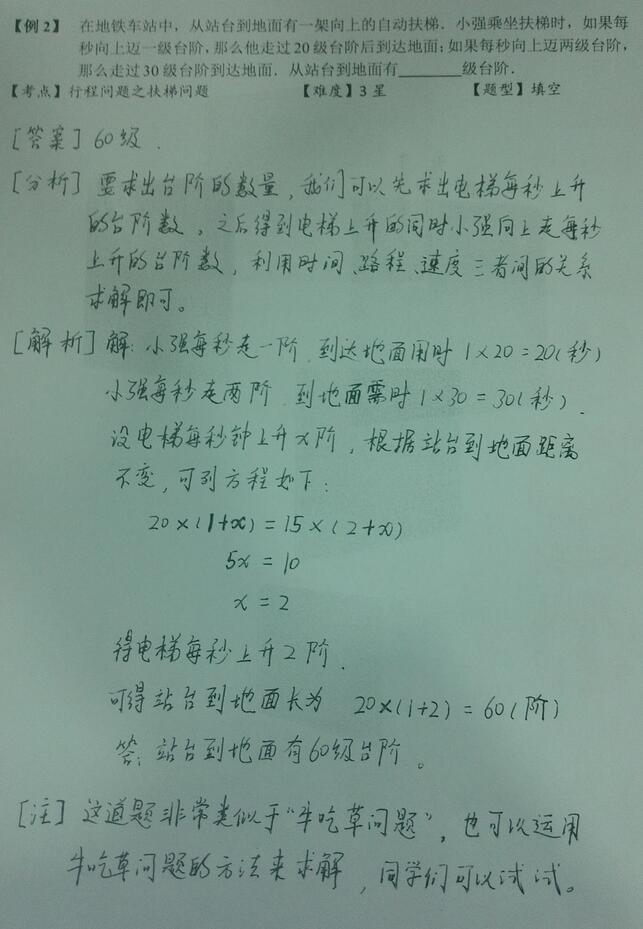 【例2】 在地铁车站中，从站台到地面有一架向上的自动扶梯．小强乘坐扶梯时，如果每
秒向上迈一级台阶，那么他走过20级台阶后到达地面；如果每秒向上迈两级台阶，
那么走过30级台阶到达地面．从站台到地面有________级台阶．
【考点】行程问题之扶梯问题 【难度】3星 【题型】填空
[答案] 60级．
[分析] 要求出台阶的数量，我们可以先求出电梯每秒上升
的台阶数，之后得到电梯上升的同时小强向上走每秒
上升的台阶数，利用时间、路程、速度三者间的关系
求解即可。
[解析] 解: 小强每秒走一阶 到达地面用时 1×20=20(秒)
小强每秒走两阶 到地面需时 1×30=30(秒)．
设电梯每秒钟上升x阶，根据站台到地面距离
不变，可列方程如下:
20×(1+x)=15×(2+x)
5x=10
x=2
得电梯每秒上升2阶．
可得站台到地面长为 20×(1+2)=60(阶)
答: 站台到地面有60级台阶。
[注] 这道题非常类似于“牛吃草问题”，也可以运用
牛吃草问题的方法来求解，同学们可以试试。